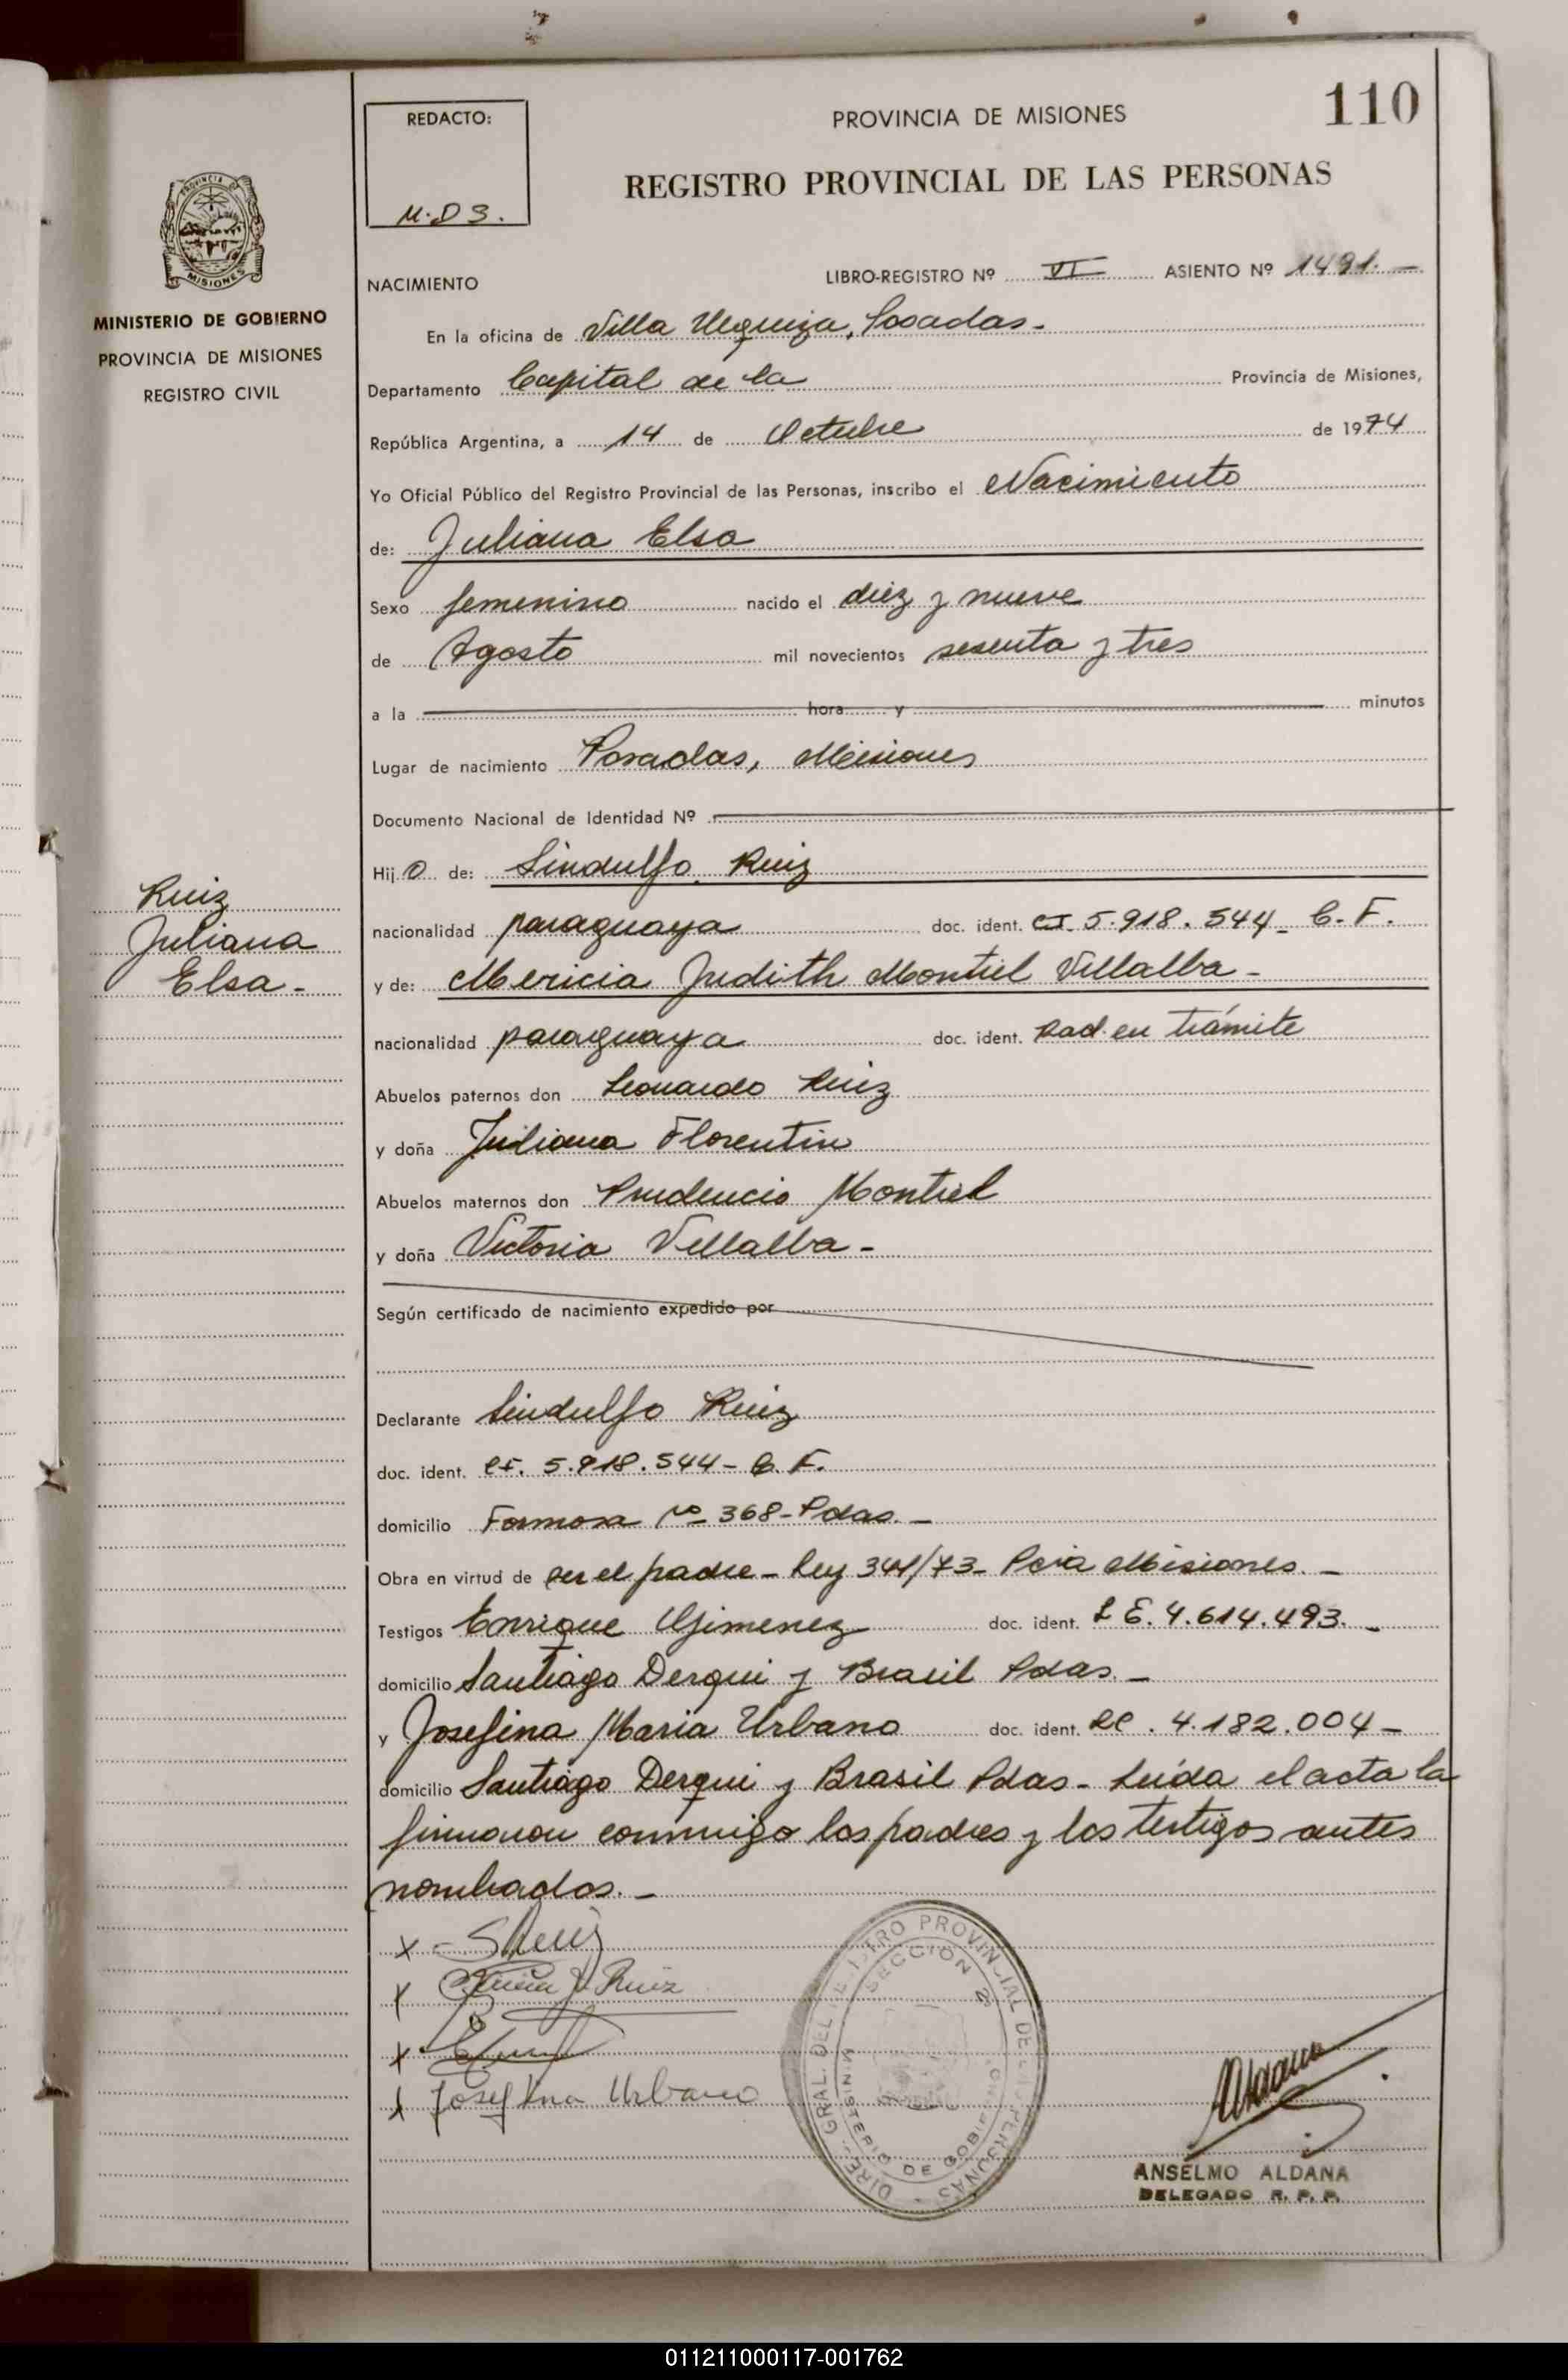 110
REDACTO:
M.D S.
PROVINCIA DE MISIONES
REGISTRO PROVINCIAL DE LAS PERSONAS
PROVINCIA DE
MISIONES
MINISTERIO DE GOBIERNO
PROVINCIA DE MISIONES
REGISTRO CIVIL
NACIMIENTO
LIBRO-REGISTRO Nº VI ASIENTO Nº 1491.-
En la oficina de Villa Urquiza, Posadas-
Departamento Capital de la Provincia de Misiones,
República Argentina, a 14 de Octubre de 1974
Yo Oficial Público del Registro Provincial de las Personas, inscribo el Nacimiento
de: Juliana Elsa
Sexo femenino nacido el diez y nueve
de Agosto mil novecientos sesenta y tres
a la hora y minutos
Lugar de nacimiento Posadas, Misiones
Documento Nacional de Identidad Nº
Hij o de: Sindulfo Ruiz
Ruiz
Juliana
Elsa-
nacionalidad paraguaya doc. ident. CI. 5.918.544- C.F.
y de: Mericia Judith Montiel Villalba-
nacionalidad paraguaya doc. ident. Rad. en trámite
Abuelos paternos don Leonardo Ruiz
y doña Juliana Florentin
Abuelos maternos don Prudencio Montiel
y doña Victoria Villalba-
Según certificado de nacimiento expedido por
Declarante Sindulfo Ruiz
doc. ident. CI. 5.918.544- C.F.
domicilio Formosa Nº 368-Pdas.-
Obra en virtud de ser el padre- Ley 341/73- Pcia Misiones.-
Testigos Enrique Gimenez doc. ident. L E. 4.614.493.-
domicilio Santiago Derqui y Brasil Pdas.-
y Josefina Maria Urbano doc. ident. LC. 4.182.004-
domicilio Santiago Derqui y Brasil Pdas- Leída el acta la
firmaron conmigo los padres y los testigos antes
nombrados.-
x - SRuiz
x J. Ruiz
x
x Josefina Urbano
DIREC. GRAL. DEL REGISTRO PROVINCIAL DE LAS PERSONAS
SECCION 2ª
MINISTERIO DE GOBIERNO
Aldana
ANSELMO ALDANA
DELEGADO R. P. P.
011211000117-001762